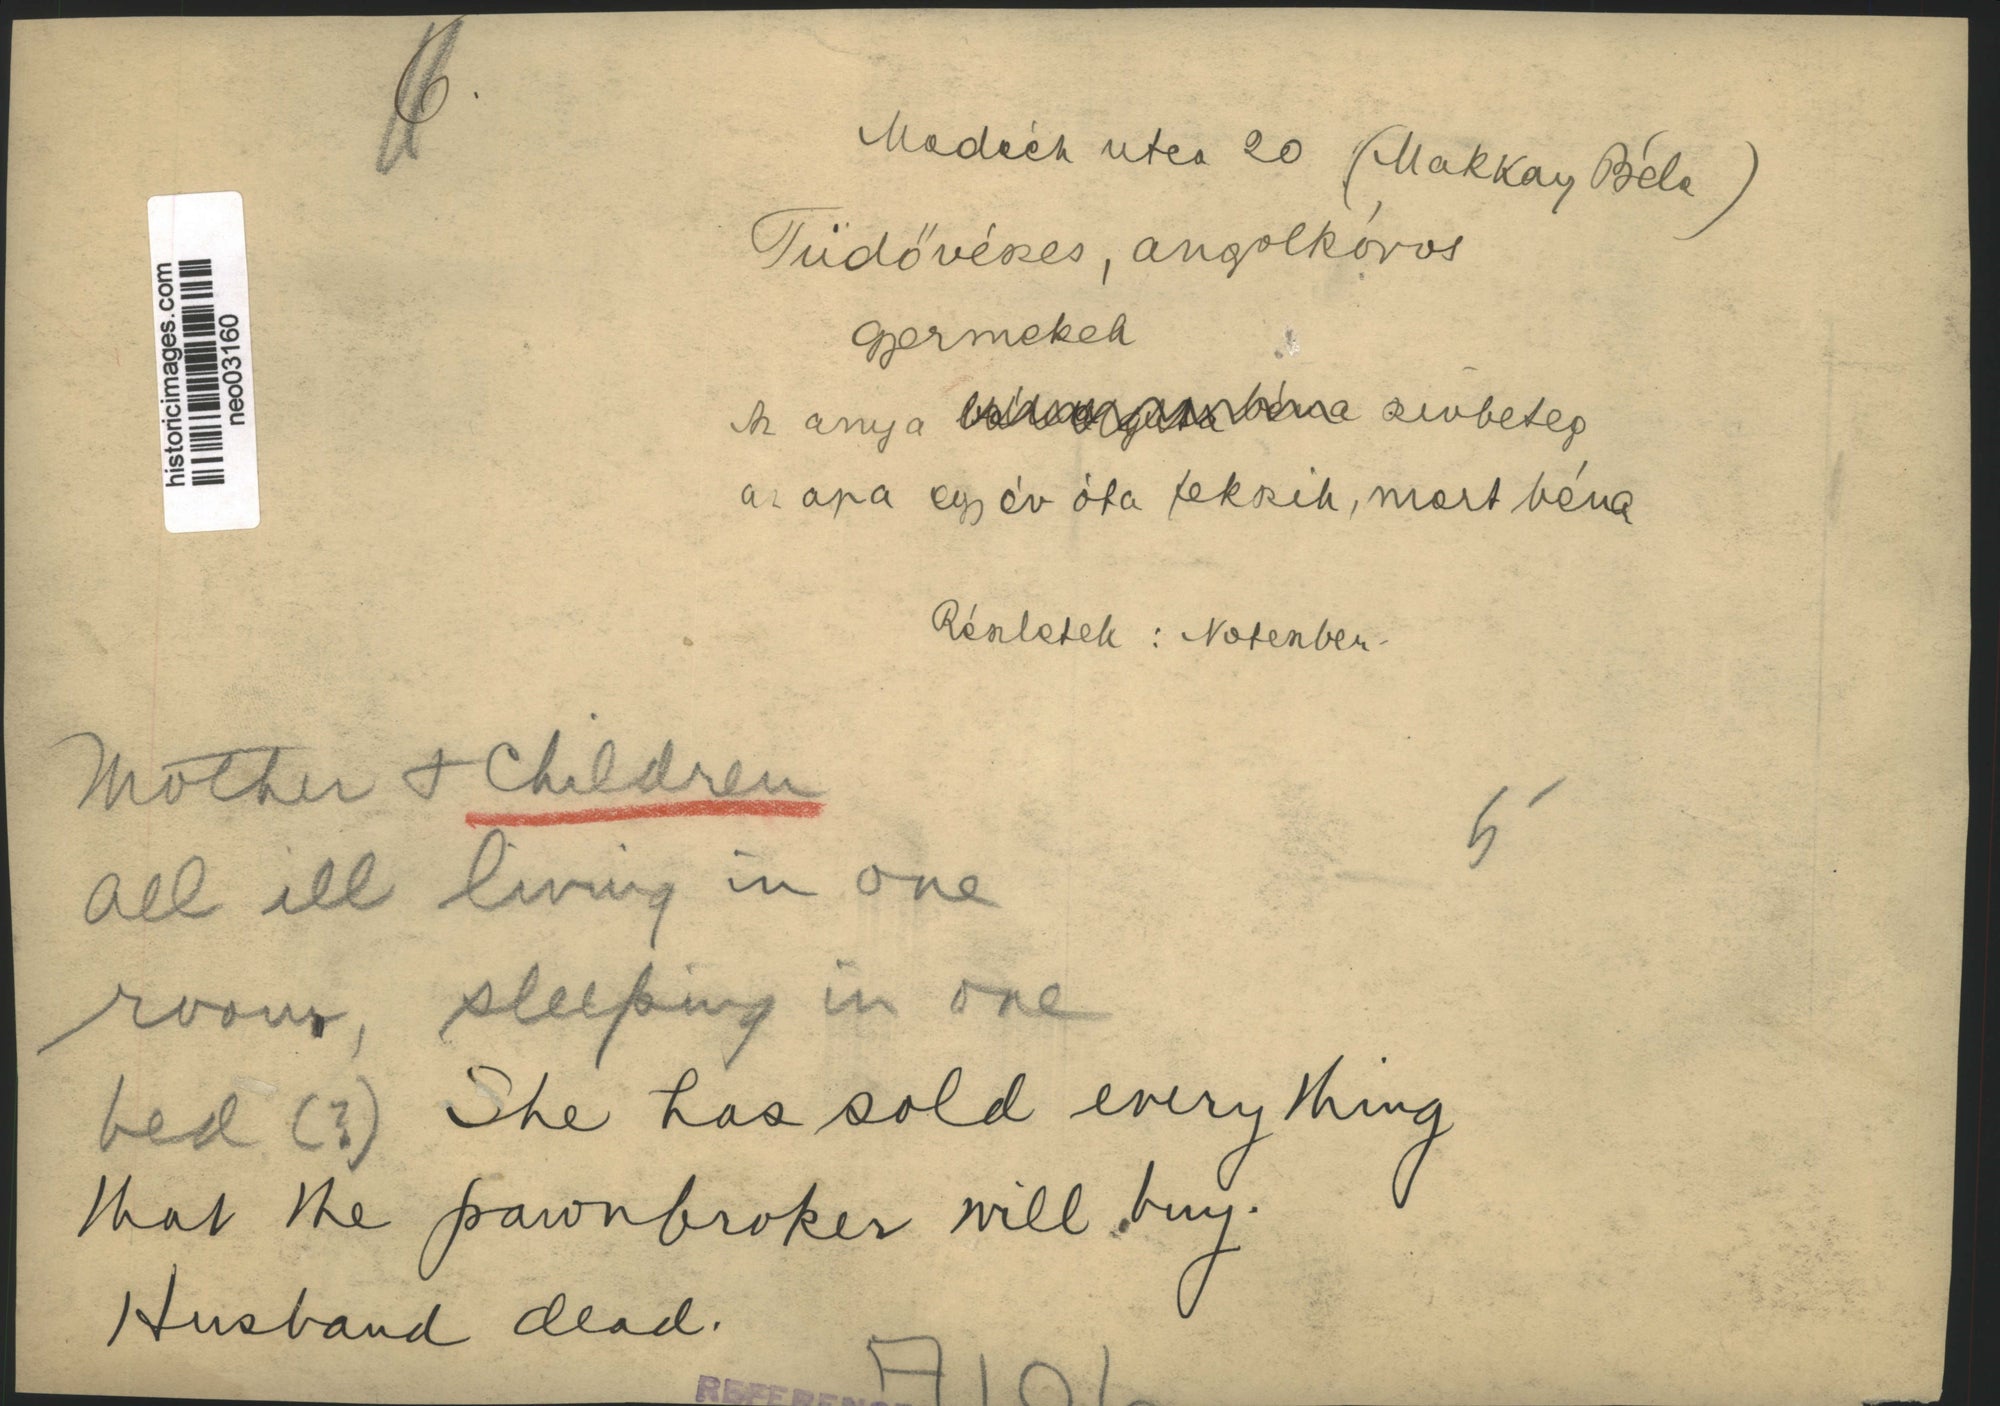 6.
Madách utca 20 (Makkay Béla)
Tüdővészes, angolkóros
gyermekek
Az anya béna szivbeteg
az apa egy év óta fekszik, mert béna
Részletek : Notenber.
historicimages.com
neo03160
Mother + Children
all ill living in one
room, sleeping in one
bed (?) She has sold everything
that the pawnbroker will buy.
Husband dead.
REFERENCE